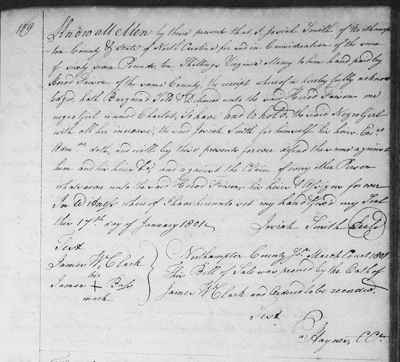 189
Know all Men by these presents that I Josiah Smith of Northamp
ton County & State of North Carolina for and in Consideration of the sum
of sixty seven Pounds, ten Shillings Virginia Money to him in hand paid by
Herod Faison of the same County, the receipt whereof is hereby fully acknow
ledged, hath Bargaind Sold & Delivered unto the said Herod Faison one
negro Girl named Charlot, To have and to hold the said Negro Girl
with all her increase, the said Josiah Smith for himself his heirs Exrs
Adm.rs doth, and with by these presents forever defend the same against
him and his heirs &c and against the Claim of every other Person
whatsoever unto the said Herod Faison, his heirs & Assigns for ever
In Witness whereof I have hereunto set my hand & fix'd my Seal
this 17th day of January 1801.
Josiah Smith (Seal)
Test
James W Clark
his
James + Bass
mark
Northampton County Ss. March Court 1801
This Bill of Sale was proved by the Oath of
James W Clark and Ordered to be recorded.
Test
CCk